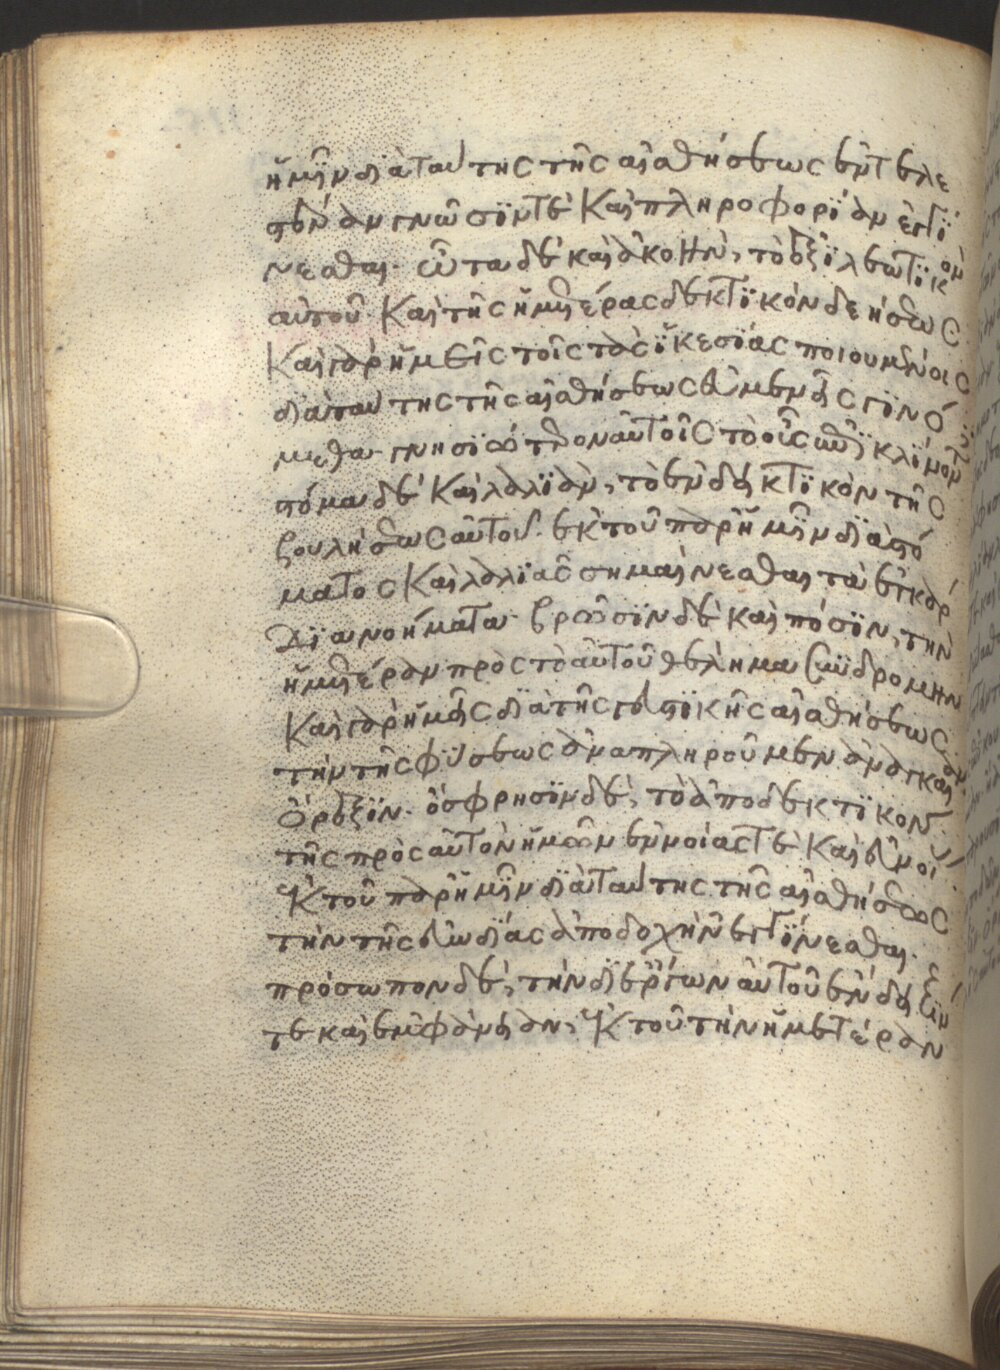 ἡμῖν διὰ ταύτης τῆς αἰσθήσεως ἐντελε
στέραν γνῶσίν τε καὶ πληροφορίαν ἐγγί
νεσθαι· ὦτα δὲ καὶ ἀκοὴν, τὸ ἐξιλεωτικὸν
αὐτοῦ· καὶ τῆς ἡμετέρας δεκτικὸν δεήσεως·
καὶ γὰρ ἡμεῖς τοῖς τὰς ἱκεσίας ποιουμένοις
διὰ ταύτης τῆς αἰσθήσεως εὐμενεῖς γινό
μεθα· γνησιώτερον αὐτοῖς τὸ οὖς ἐπικλίνοντες·
στόμα δὲ καὶ λαλιὰν, τὸ ἐνδεικτικὸν τῆς
βουλήσεως αὐτοῦ· ἐκ τοῦ παρ' ἡμῖν διὰ στό
ματος καὶ λαλιᾶς σημαίνεσθαι τὰ ἐγκάρ
δια νοήματα· βρῶσιν δὲ καὶ πόσιν, τὴν
ἡμετέραν πρὸς τὸ αὐτοῦ θέλημα συνδρομήν
καὶ γὰρ ἡμεῖς διὰ τῆς γευστικῆς αἰσθήσεως
τὴν τῆς φύσεως ἀναπληροῦμεν ἀναγκαίαν
ὄρεξιν· ὄσφρησιν δὲ, τὸ ἀποδεκτικὸν
τῆς πρὸς αὐτὸν ἡμῶν ἐννοίας τὲ καὶ εὐνοί
ἐκ τοῦ παρ' ἡμῖν διὰ ταύτης τῆς αἰσθήσεως
τὴν τῆς εὐωδίας ἀποδοχὴν ἐγγίνεσθαι·
πρόσωπον δὲ, τὴν δι' ἔργων αὐτοῦ ἔνδειξίν
τε καὶ ἐμφάνειαν, ἐκ τοῦ τὴν ἡμετέραν